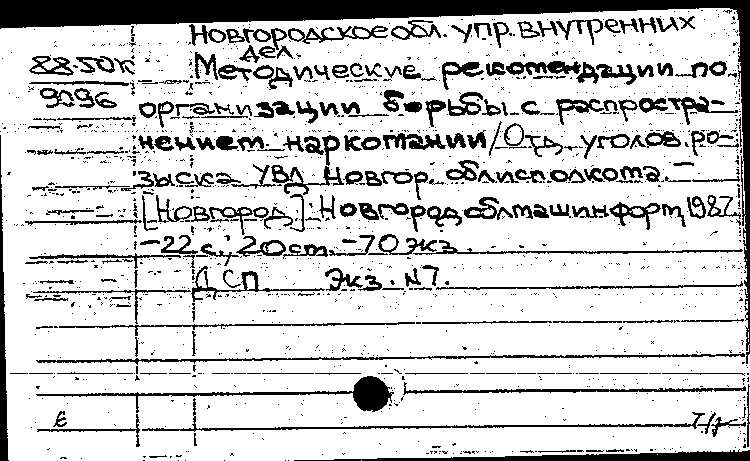 Новгородское обл. упр. внутренних
дел.
88-50к
Методические рекомендации по
9096
организации борьбы с распростра-
нением наркомании/Отд. уголов. ро-
зыска УВД Новгор. облисполкома. —
[Новгород]: Новгород. облмашинформ, 1987.
-22 с.; 20 ст. -70 экз.
ДСП. Экз. №7.